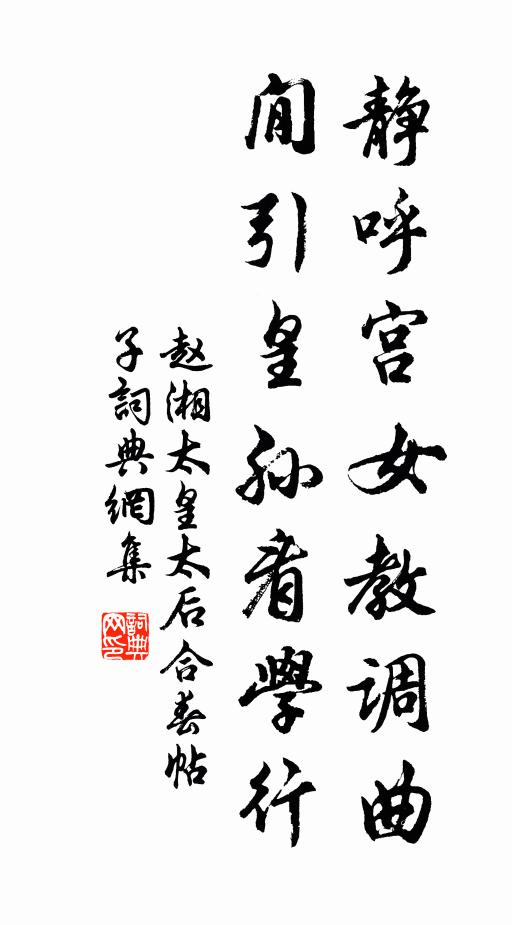 静呼宫女教调曲
閒引皇孙看學行
赵湘太皇太后合春帖
子詞典網集
詞典
网印